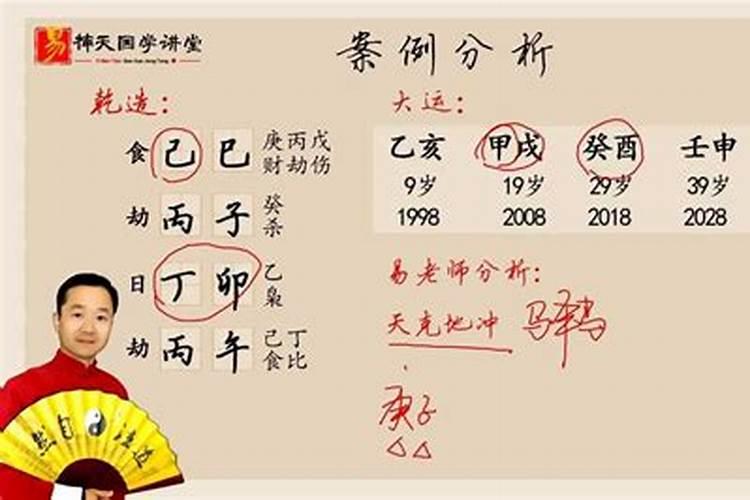 易 天国学讲堂
案例分析
乾造：
食 己 巳 庚丙戊
财劫伤
劫 丙 子 癸
杀
日 丁 卯 乙
枭
劫 丙 午 己丁
食比
大运：
乙亥 甲戌 癸酉 壬申
9岁 19岁 29岁 39岁
1998 2008 2018 2028
易老师分析：
天克地冲
庚子
道法自然